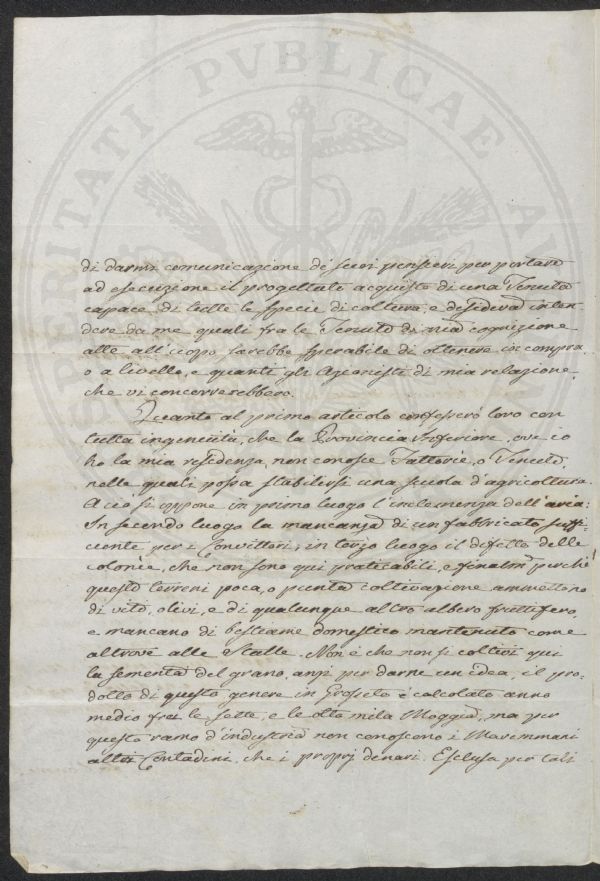 PROSPERITATI PVBLICAE AV
di darmi comunicazione de' suoi pensieri per portare
ad esecuzione il progettato acquisto di una Tenuta
capace di tutte le specie di colture, e desidera inten-
dere da me quali fra le Tenute di mia cognizione
atte all' uopo sarebbe sperabile di ottenere in compra,
o a livello, e quanti gli Azionisti di mia relazione,
che vi concorrerebbero.
Quanto al primo articolo confesserò loro con
tutta ingenuità, che la Provincia Inferiore, ove io
ho la mia residenza, non conosce Fattorie, o Tenute,
nelle quali possa stabilirsi una scuola d'agricoltura.
A ciò si oppone in primo luogo l'inclemenza dell'aria:
In secondo luogo la mancanza di un fabbricato suffi-
ciente per i Convittori, in terzo luogo il difetto delle
colonie, che non sono qui praticabili, e finalm.e perché
questi terreni poca, o punta coltivazione ammettono
di viti, olivi, e di qualunque altro albero fruttifero,
e mancano di bestiame domestico mantenuto come
altrove alle Stalle. Non è che non si coltivi qui
la sementa del grano, anzi per darne un idea, il pro-
dotto di questo genere in Grosseto è calcolato anno
medio fra le sette, e le otto mila Moggia, ma per
questo ramo d'industria non conoscono i Maremmani
altri Contadini, che i proprj denari. Esclusa per tali